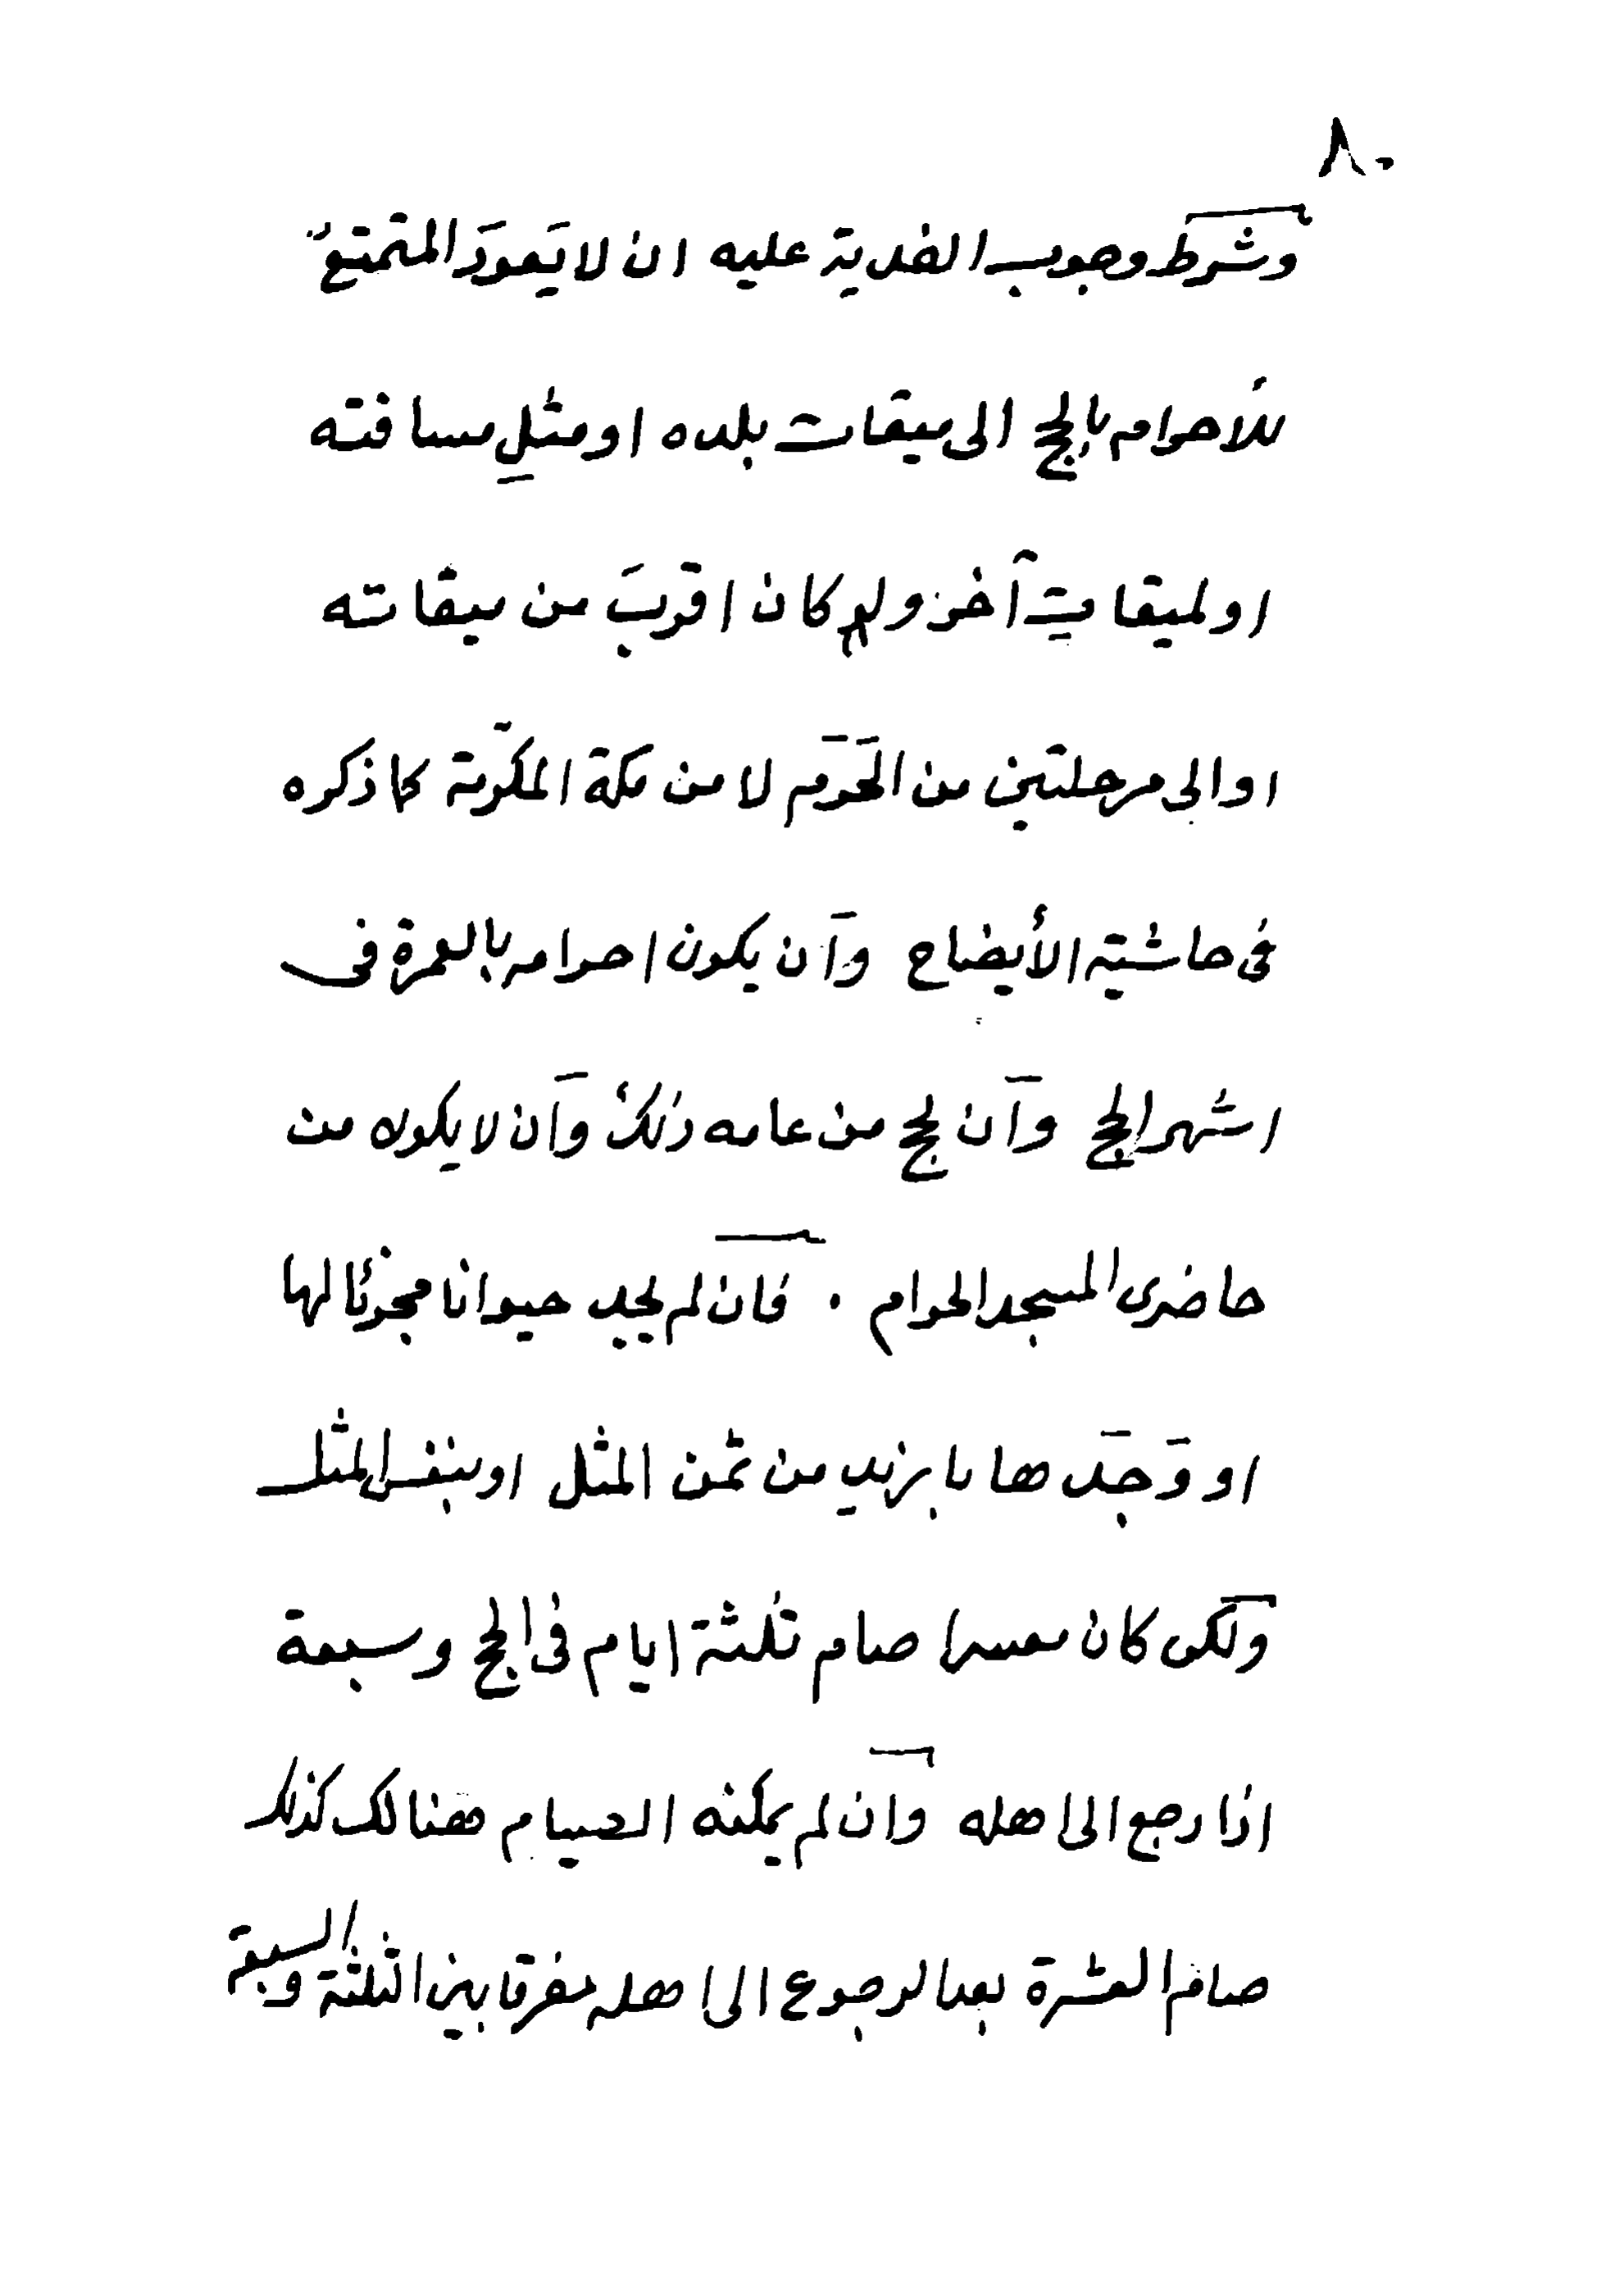 ٨٠
وشرط وجوب الفدية عليه ان لا يَعودَ المتمتعُ
للأحرام بالحج الى ميقات بلده او مثلِ مسافته
او لميقات آخر ولو كان اقربَ من ميقاته
او الى مرحلتين من الحَرَم لا من مكة المكرّمة كما ذكره
فى حاشية الأيضاح وآن يكون احرامه بالعمرة فى
اشهر الحج وآن يحج من عامه ذلك وآن لا يكون من
حاضرى المسجد الحرام . فان لم يجد حيوانا مجزئا لها
او وَجَدَها بما يزيد من ثمن المثل او بنفس المثل
ولكن كان معسرا صام ثلثة ايام فى الحج وسبعة
اذا رجع الى اهله وان لم يمكنه الصيام هنالك كذلك
صام العشرة بعد الرجوع الى اهله مفرقا بين الثلثة والسبعة